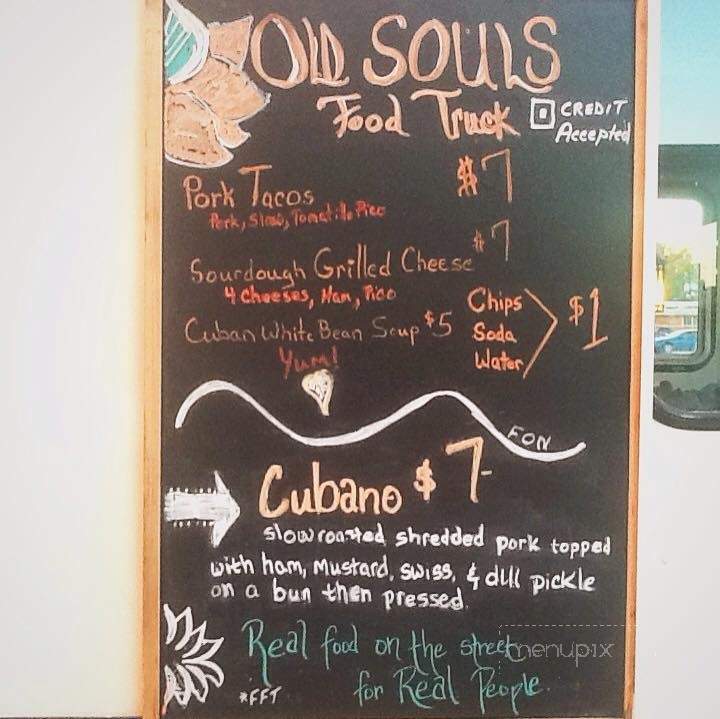 OLD SOULS
Food Truck
CREDIT
Accepted
Pork Tacos $7
Pork, Slaw, Tomatillo Pico
Sourdough Grilled Cheese $7
4 Cheeses, Ham, Pico
Cuban White Bean Soup $5
Yum!
Chips
Soda
Water
$1
FON
Cubano $7
slow roasted shredded pork topped
with ham, Mustard, swiss, & dill pickle
on a bun then pressed.
Real food on the street
for Real People.
*FFT
menupix